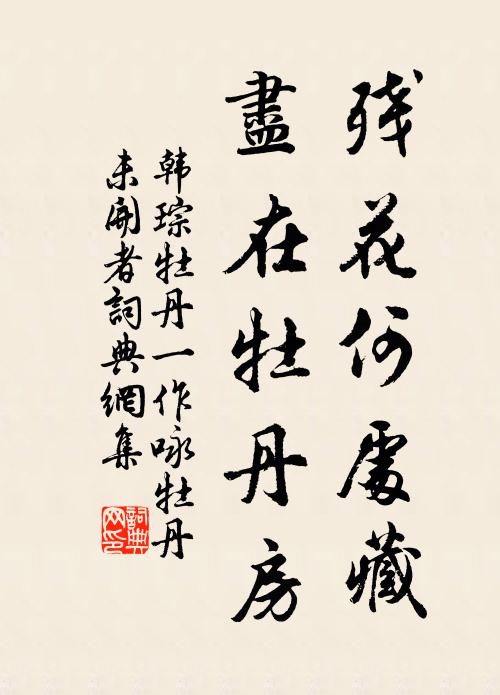 残花何處藏
盡在牡丹房
韩琮牡丹一作咏牡丹
未開者詞典網集
詞典网印